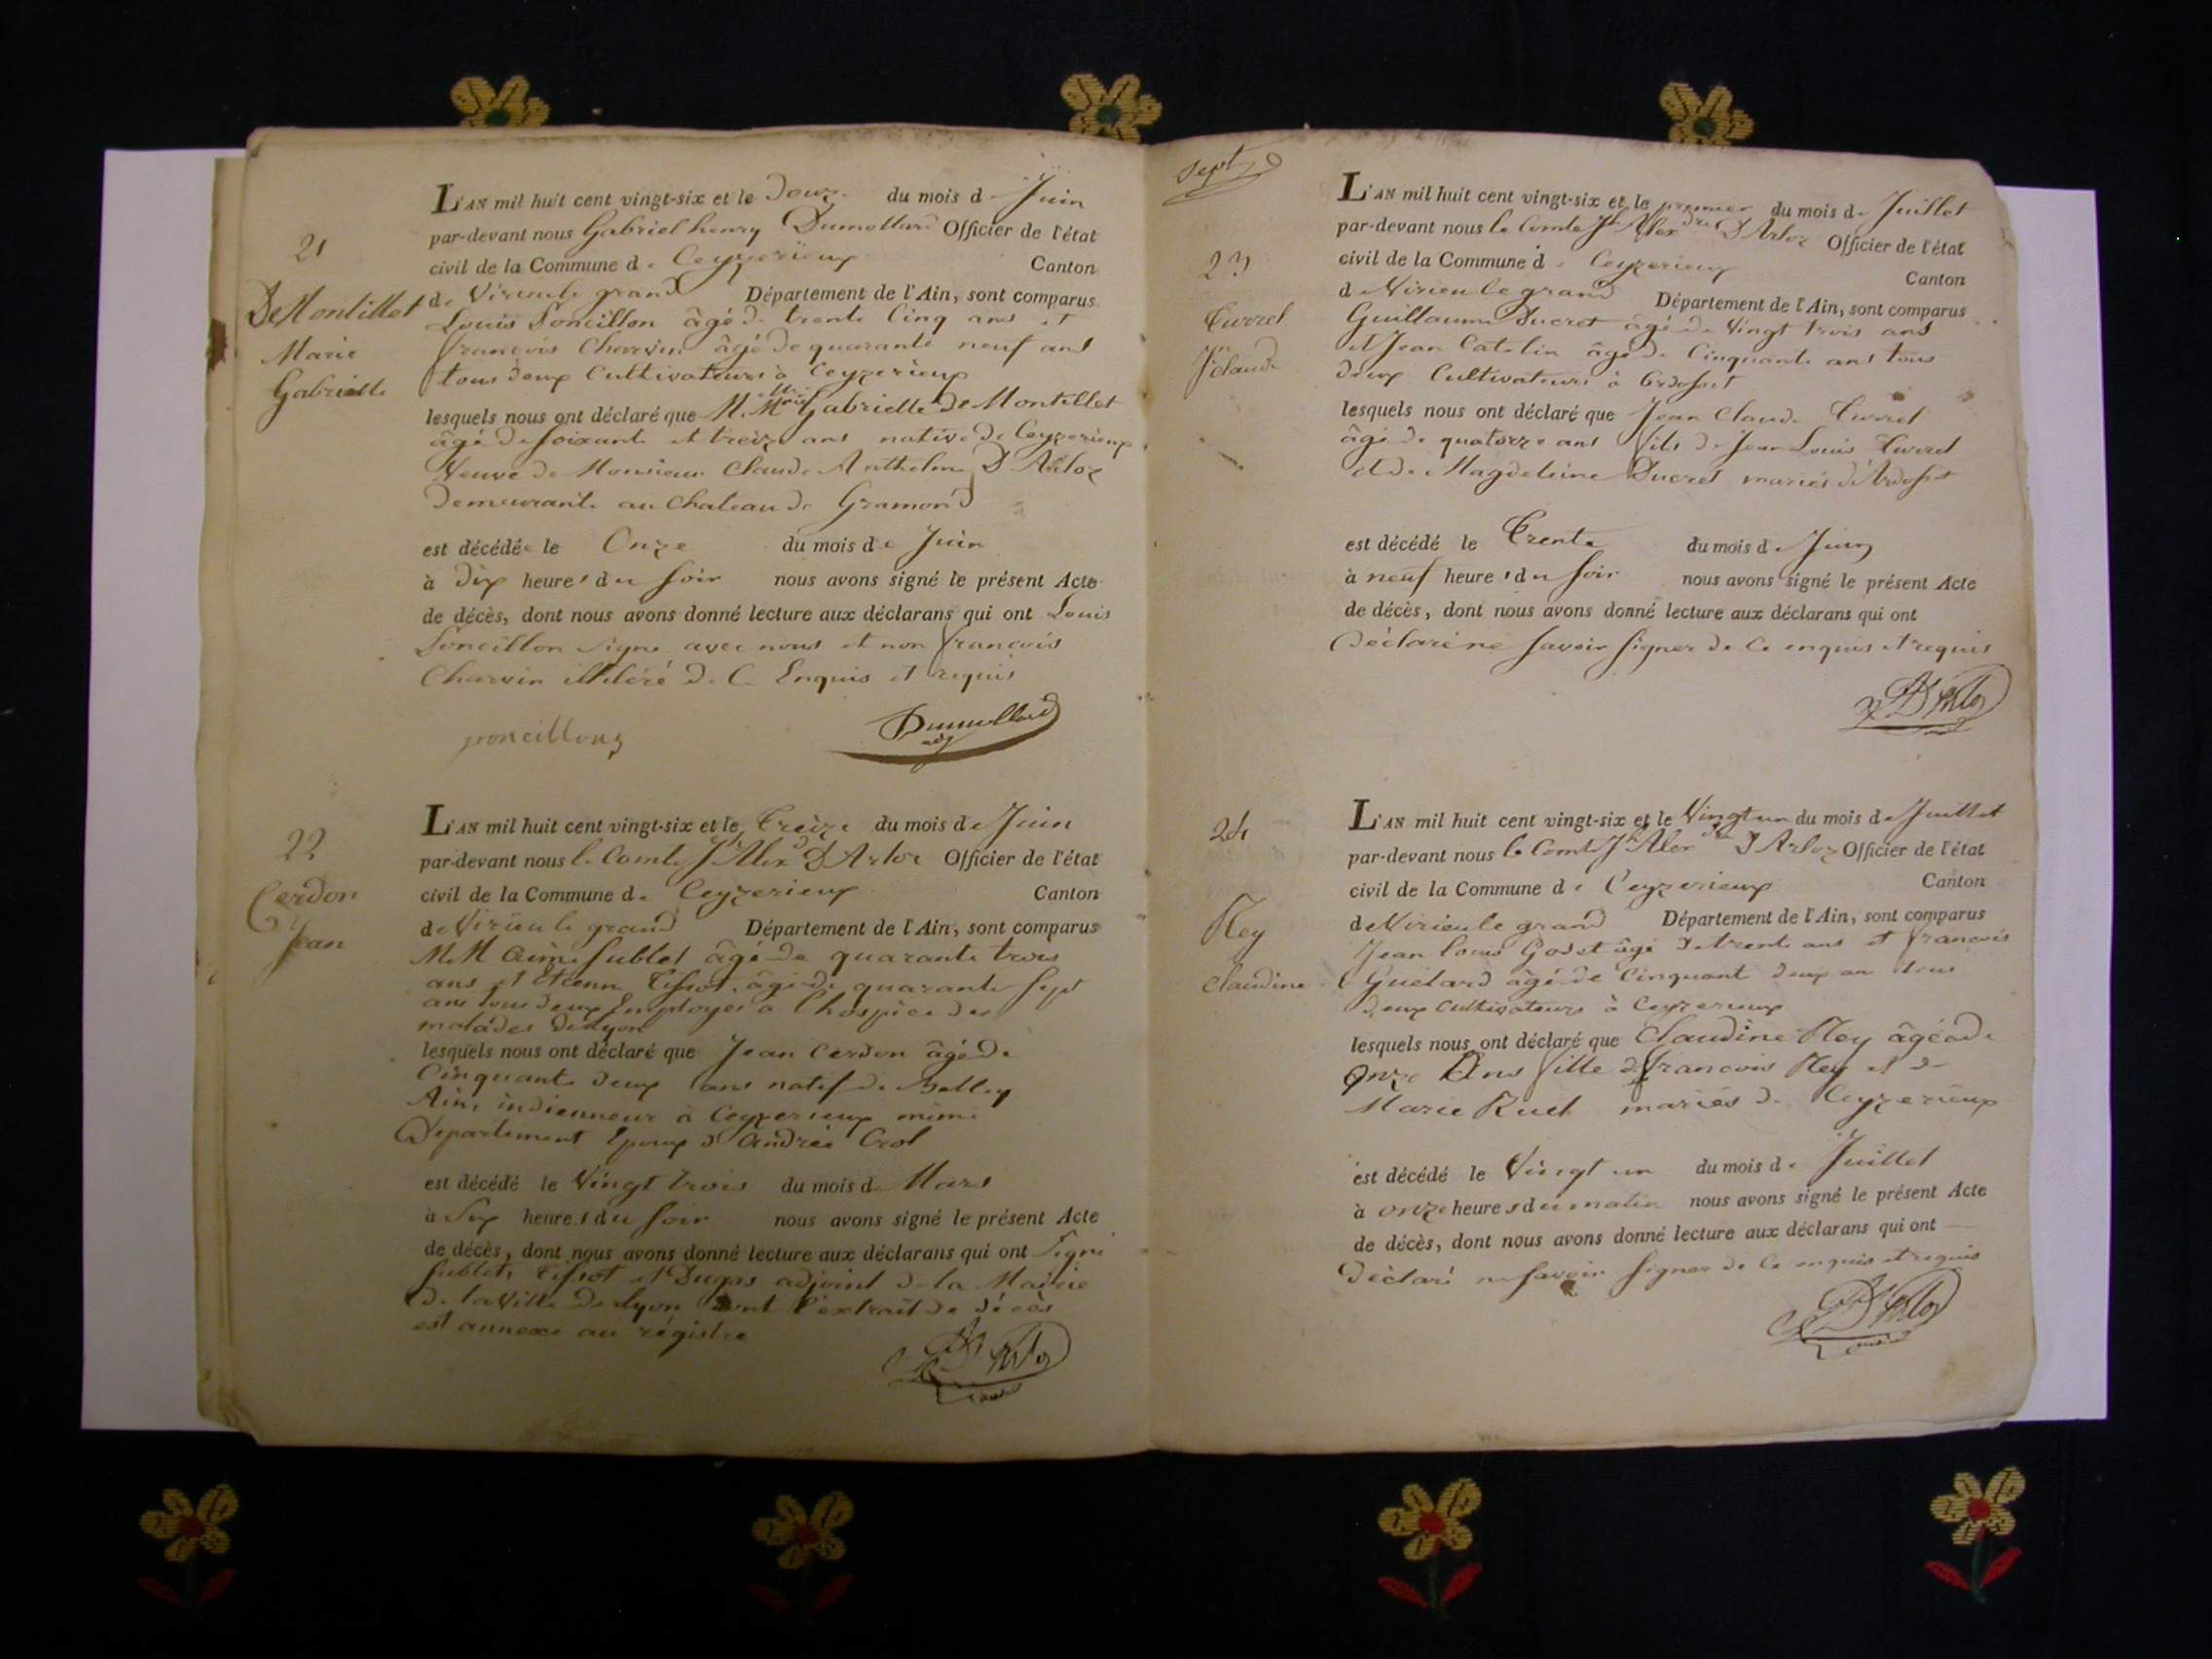 21
De Montillet
Marie
Gabrielle
L'AN mil huit cent vingt-six et le Douze du mois de Juin
par-devant nous Gabriel henry Dumollard Officier de l'état
civil de la Commune de Ceyzerieux Canton
de Virieu le grand Département de l'Ain, sont comparus
Louis Poncillon âgé de trente Cinq ans et
françois Charvin âgé de quarante neuf ans
tous deux Cultivateurs à Ceyzerieux
lesquels nous ont déclaré que M. Marie Gabrielle De Montillet
âgé de soixante et treize ans native de Ceyzerieux
Veuve de Monsieur Claude Anthelme D'Arloz
demeurante au Chateau de Gramond
est décédée le Onze du mois de Juin
à dix heures du soir nous avons signé le présent Acte
de décès, dont nous avons donné lecture aux déclarans qui ont Louis
Poncillon signe avec nous et non françois
Charvin illitéré de Ce Enquis et requis
poncillon Dumollard
22
Cerdon
Jean
L'AN mil huit cent vingt-six et le Treize du mois de Juin
par-devant nous le Comte Jh Alexdre D'Arloz Officier de l'état
civil de la Commune de Ceyzerieux Canton
de Virieu le grand Département de l'Ain, sont comparus
MM Aimé Sublet âgé de quarante trois
ans et Etienne Tissot âgé de quarante sept
ans tous deux Employés à l'hospice des
malades de Lyon
lesquels nous ont déclaré que Jean Cerdon âgé de
Cinquante deux ans natif de Belley
Ain, indienneur à Ceyzerieux même
Departement Epoux d'Andrée Crol
est décédé le Vingt trois du mois de Mars
à Six heures du soir nous avons signé le présent Acte
de décès, dont nous avons donné lecture aux déclarans qui ont Signé
Sublet, Tissot et Dugas adjoint de la Mairie
de la Ville de Lyon dont l'extrait de décès
est annexé au régistre
D'Arloz
Sept
23
Curret
Jn claude
L'AN mil huit cent vingt-six et le premier du mois de Juillet
par-devant nous le Comte Jh Alexdre D'Arloz Officier de l'état
civil de la Commune de Ceyzerieux Canton
de Virieu le grand Département de l'Ain, sont comparus
Guillaume Ducret âgé de Vingt trois ans
et Jean Catelin âgé de Cinquante ans tous
deux Cultivateurs à Ardosset
lesquels nous ont déclaré que Jean Claude Curret
âgé de quatorze ans fils de Jean Louis Curret
et de Magdeleine Ducret mariés d'Ardosset
est décédé le Trente du mois de Juin
à neuf heures du soir nous avons signé le présent Acte
de décès, dont nous avons donné lecture aux déclarans qui ont
déclaré ne savoir signer de Ce enquis et requis
D'Arloz
24
Rey
claudine
L'AN mil huit cent vingt-six et le Vingt un du mois de Juillet
par-devant nous le Comte Jh Alexdre D'Arloz Officier de l'état
civil de la Commune de Ceyzerieux Canton
de Virieu le grand Département de l'Ain, sont comparus
Jean Louis Godet âgé de trente ans et francois
Guélard âgé de Cinquante deux an tous
deux Cultivateurs à Ceyzerieux
lesquels nous ont déclaré que Claudine Rey âgée de
Onze Ans fille de francois Rey et de
Marie Ruet mariés de Ceyzerieux
est décédé le Vingt un du mois de Juillet
à onze heures du matin nous avons signé le présent Acte
de décès, dont nous avons donné lecture aux déclarans qui ont
déclaré ne savoir signer de Ce enquis et requis
D'Arloz